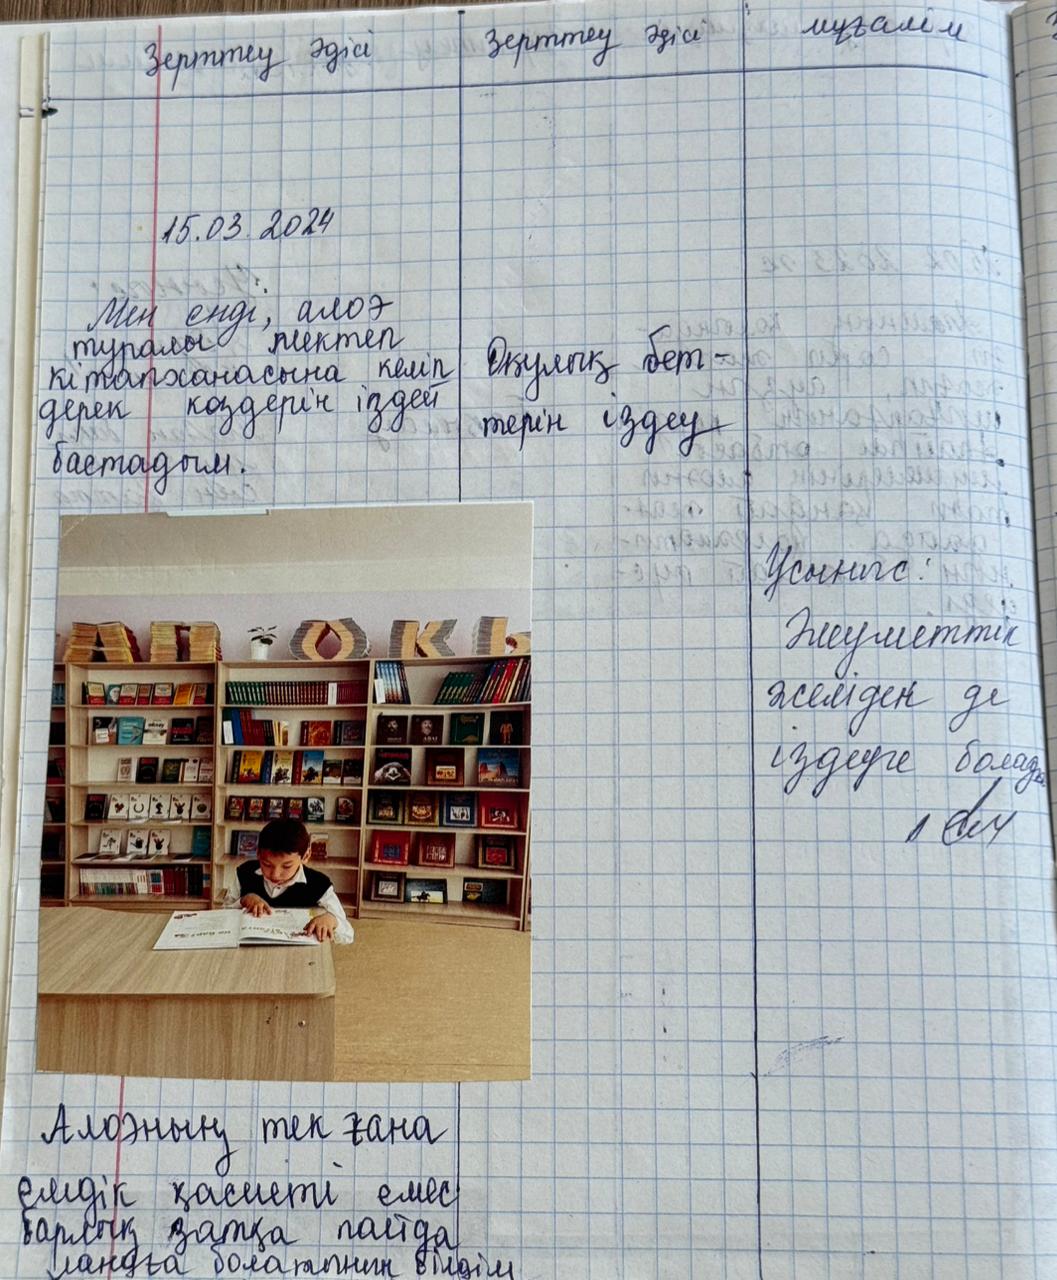 Зерттеу әдісі
Зерттеу әдісі
мұғалім
15.03.2024
Мен енді, алоэ
туралы мектеп
кітапханасына келіп
дерек көздерін іздей
бастадым.
Оқулық бет-
терін іздеу
Ұсыныс:
Әлеуметтік
желіден де
іздеуге болады
Алоэның тек қана
емдік қасиеті емес
барлық затқа пайда
лануға болатынын білдім